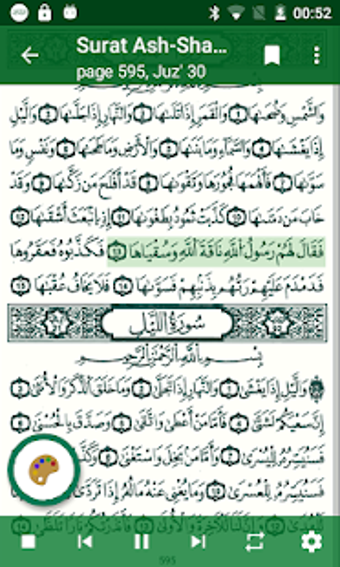 00:52
Surat Ash-Sha...
page 595, Juz' 30
وَٱلشَّمْسِ وَضُحَىٰهَا ١ وَٱلْقَمَرِ إِذَا تَلَىٰهَا ٢ وَٱلنَّهَارِ إِذَا جَلَّىٰهَا ٣ وَٱلَّيْلِ
إِذَا يَغْشَىٰهَا ٤ وَٱلسَّمَآءِ وَمَا بَنَىٰهَا ٥ وَٱلْأَرْضِ وَمَا طَحَىٰهَا ٦ وَنَفْسٍ وَمَا
سَوَّىٰهَا ٧ فَأَلْهَمَهَا فُجُورَهَا وَتَقْوَىٰهَا ٨ قَدْ أَفْلَحَ مَن زَكَّىٰهَا ٩ وَقَدْ
خَابَ مَن دَسَّىٰهَا ١٠ كَذَّبَتْ ثَمُودُ بِطَغْوَىٰهَآ ١١ إِذِ ٱنۢبَعَثَ أَشْقَىٰهَا ١٢
فَقَالَ لَهُمْ رَسُولُ ٱللَّهِ نَاقَةَ ٱللَّهِ وَسُقْيَـٰهَا ١٣ فَكَذَّبُوهُ فَعَقَرُوهَا
فَدَمْدَمَ عَلَيْهِمْ رَبُّهُم بِذَنۢبِهِمْ فَسَوَّىٰهَا ١٤ وَلَا يَخَافُ عُقْبَـٰهَا ١٥
سُورَةُ اللَّيْلِ
بِسْمِ ٱللَّهِ ٱلرَّحْمَـٰنِ ٱلرَّحِيمِ
وَٱلَّيْلِ إِذَا يَغْشَىٰ ١ وَٱلنَّهَارِ إِذَا تَجَلَّىٰ ٢ وَمَا خَلَقَ ٱلذَّكَرَ وَٱلْأُنثَىٰٓ ٣
إِنَّ سَعْيَكُمْ لَشَتَّىٰ ٤ فَأَمَّا مَنْ أَعْطَىٰ وَٱتَّقَىٰ ٥ وَصَدَّقَ بِٱلْحُسْنَىٰ ٦
فَسَنُيَسِّرُهُۥ لِلْيُسْرَىٰ ٧ وَأَمَّا مَنۢ بَخِلَ وَٱسْتَغْنَىٰ ٨
فَسَنُيَسِّرُهُۥ لِلْعُسْرَىٰ ١٠ وَمَا يُغْنِى عَنْهُ مَالُهُۥٓ إِذَا تَرَدَّىٰٓ
لَلْهُدَىٰ ١٢ وَإِنَّ لَنَا لَلْـَٔاخِرَةَ وَٱلْأُولَىٰ ١٣ فَأَنذَرْتُكُمْ نَارًا تَلَظَّىٰ ١٤
595